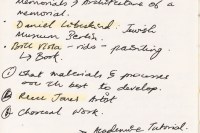 Memorials & Architecture of a
memorial.
Daniel Libeskind: Jewish
Museum Berlin.
Bill Viola - video - painting
↳ Book.
① What materials & processes
are the best to develop.
② Artist
③ Charcoal Work.
→ Academic Tutorial.